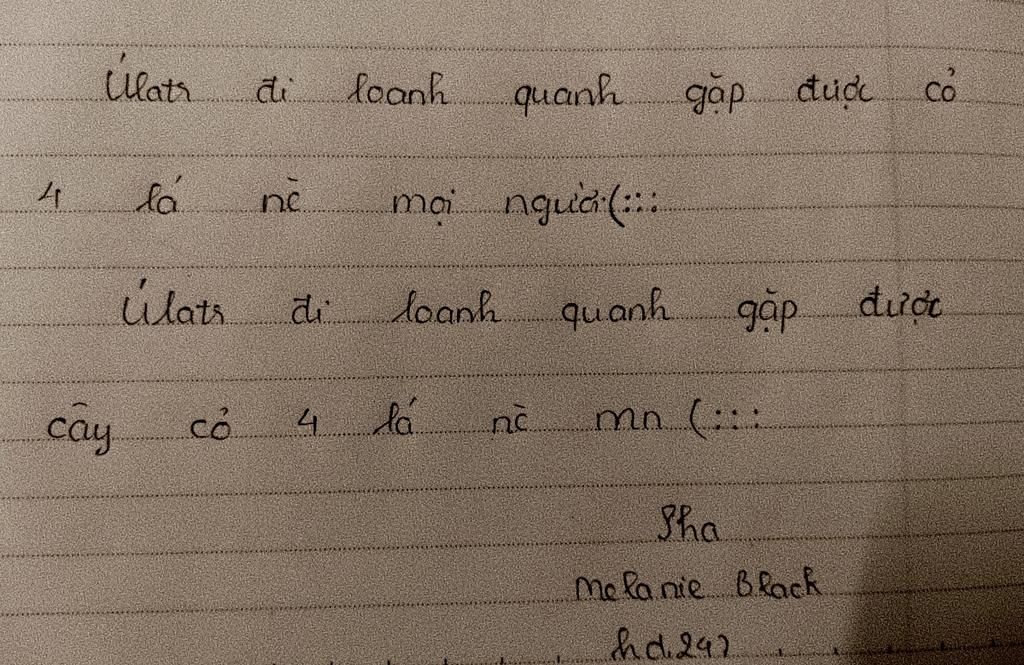 Úlatr đi loanh quanh gặp được cỏ
4 lá nè mọi người(:::
Úlatr đi loanh quanh gặp được
cây cỏ 4 lá nè mn (:::
Pha
Melanie Black
hd.247